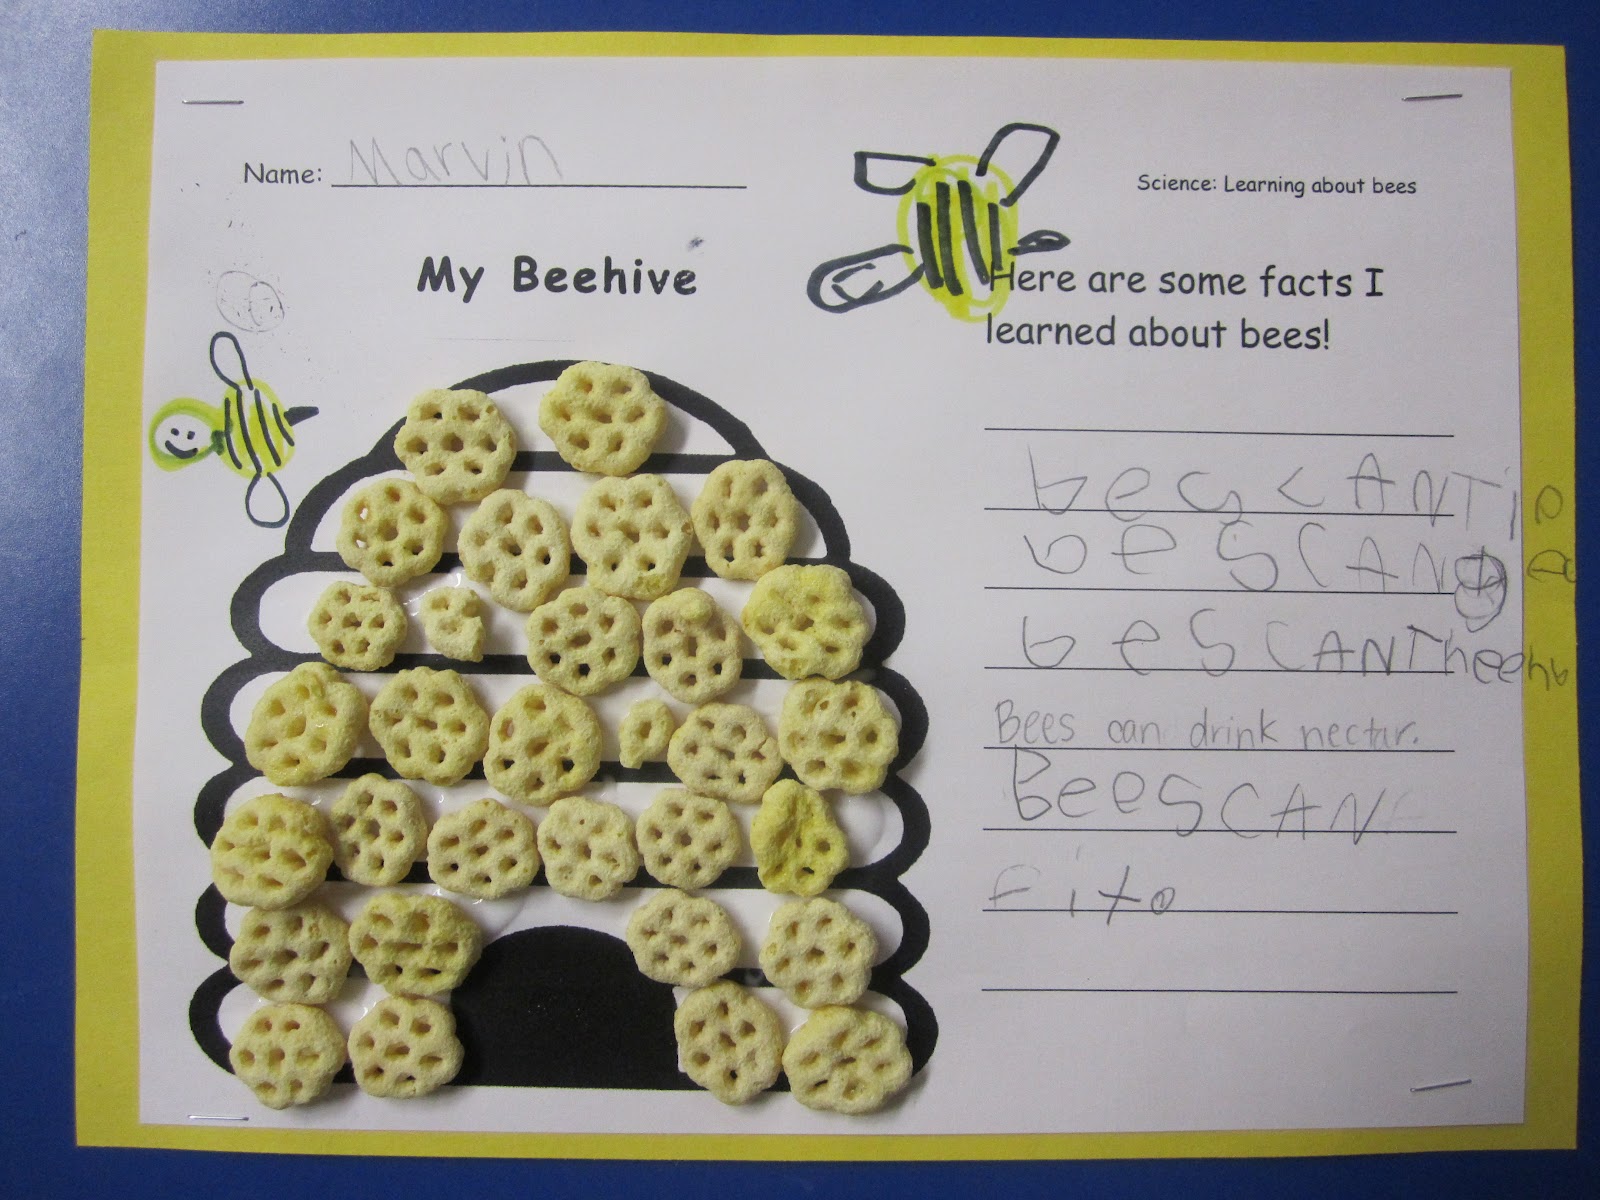 Name: Marvin
Science: Learning about bees
My Beehive
Here are some facts I
learned about bees!
CANT
bes CAN
bes CAN
Bees can drink nectar.
Bees CAN
Fito